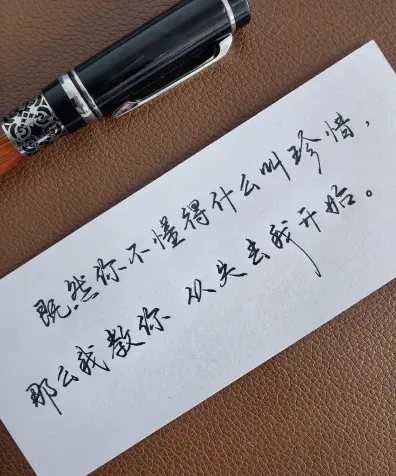 既然你不懂得什么叫珍惜，
那么我教你 从失去我开始。